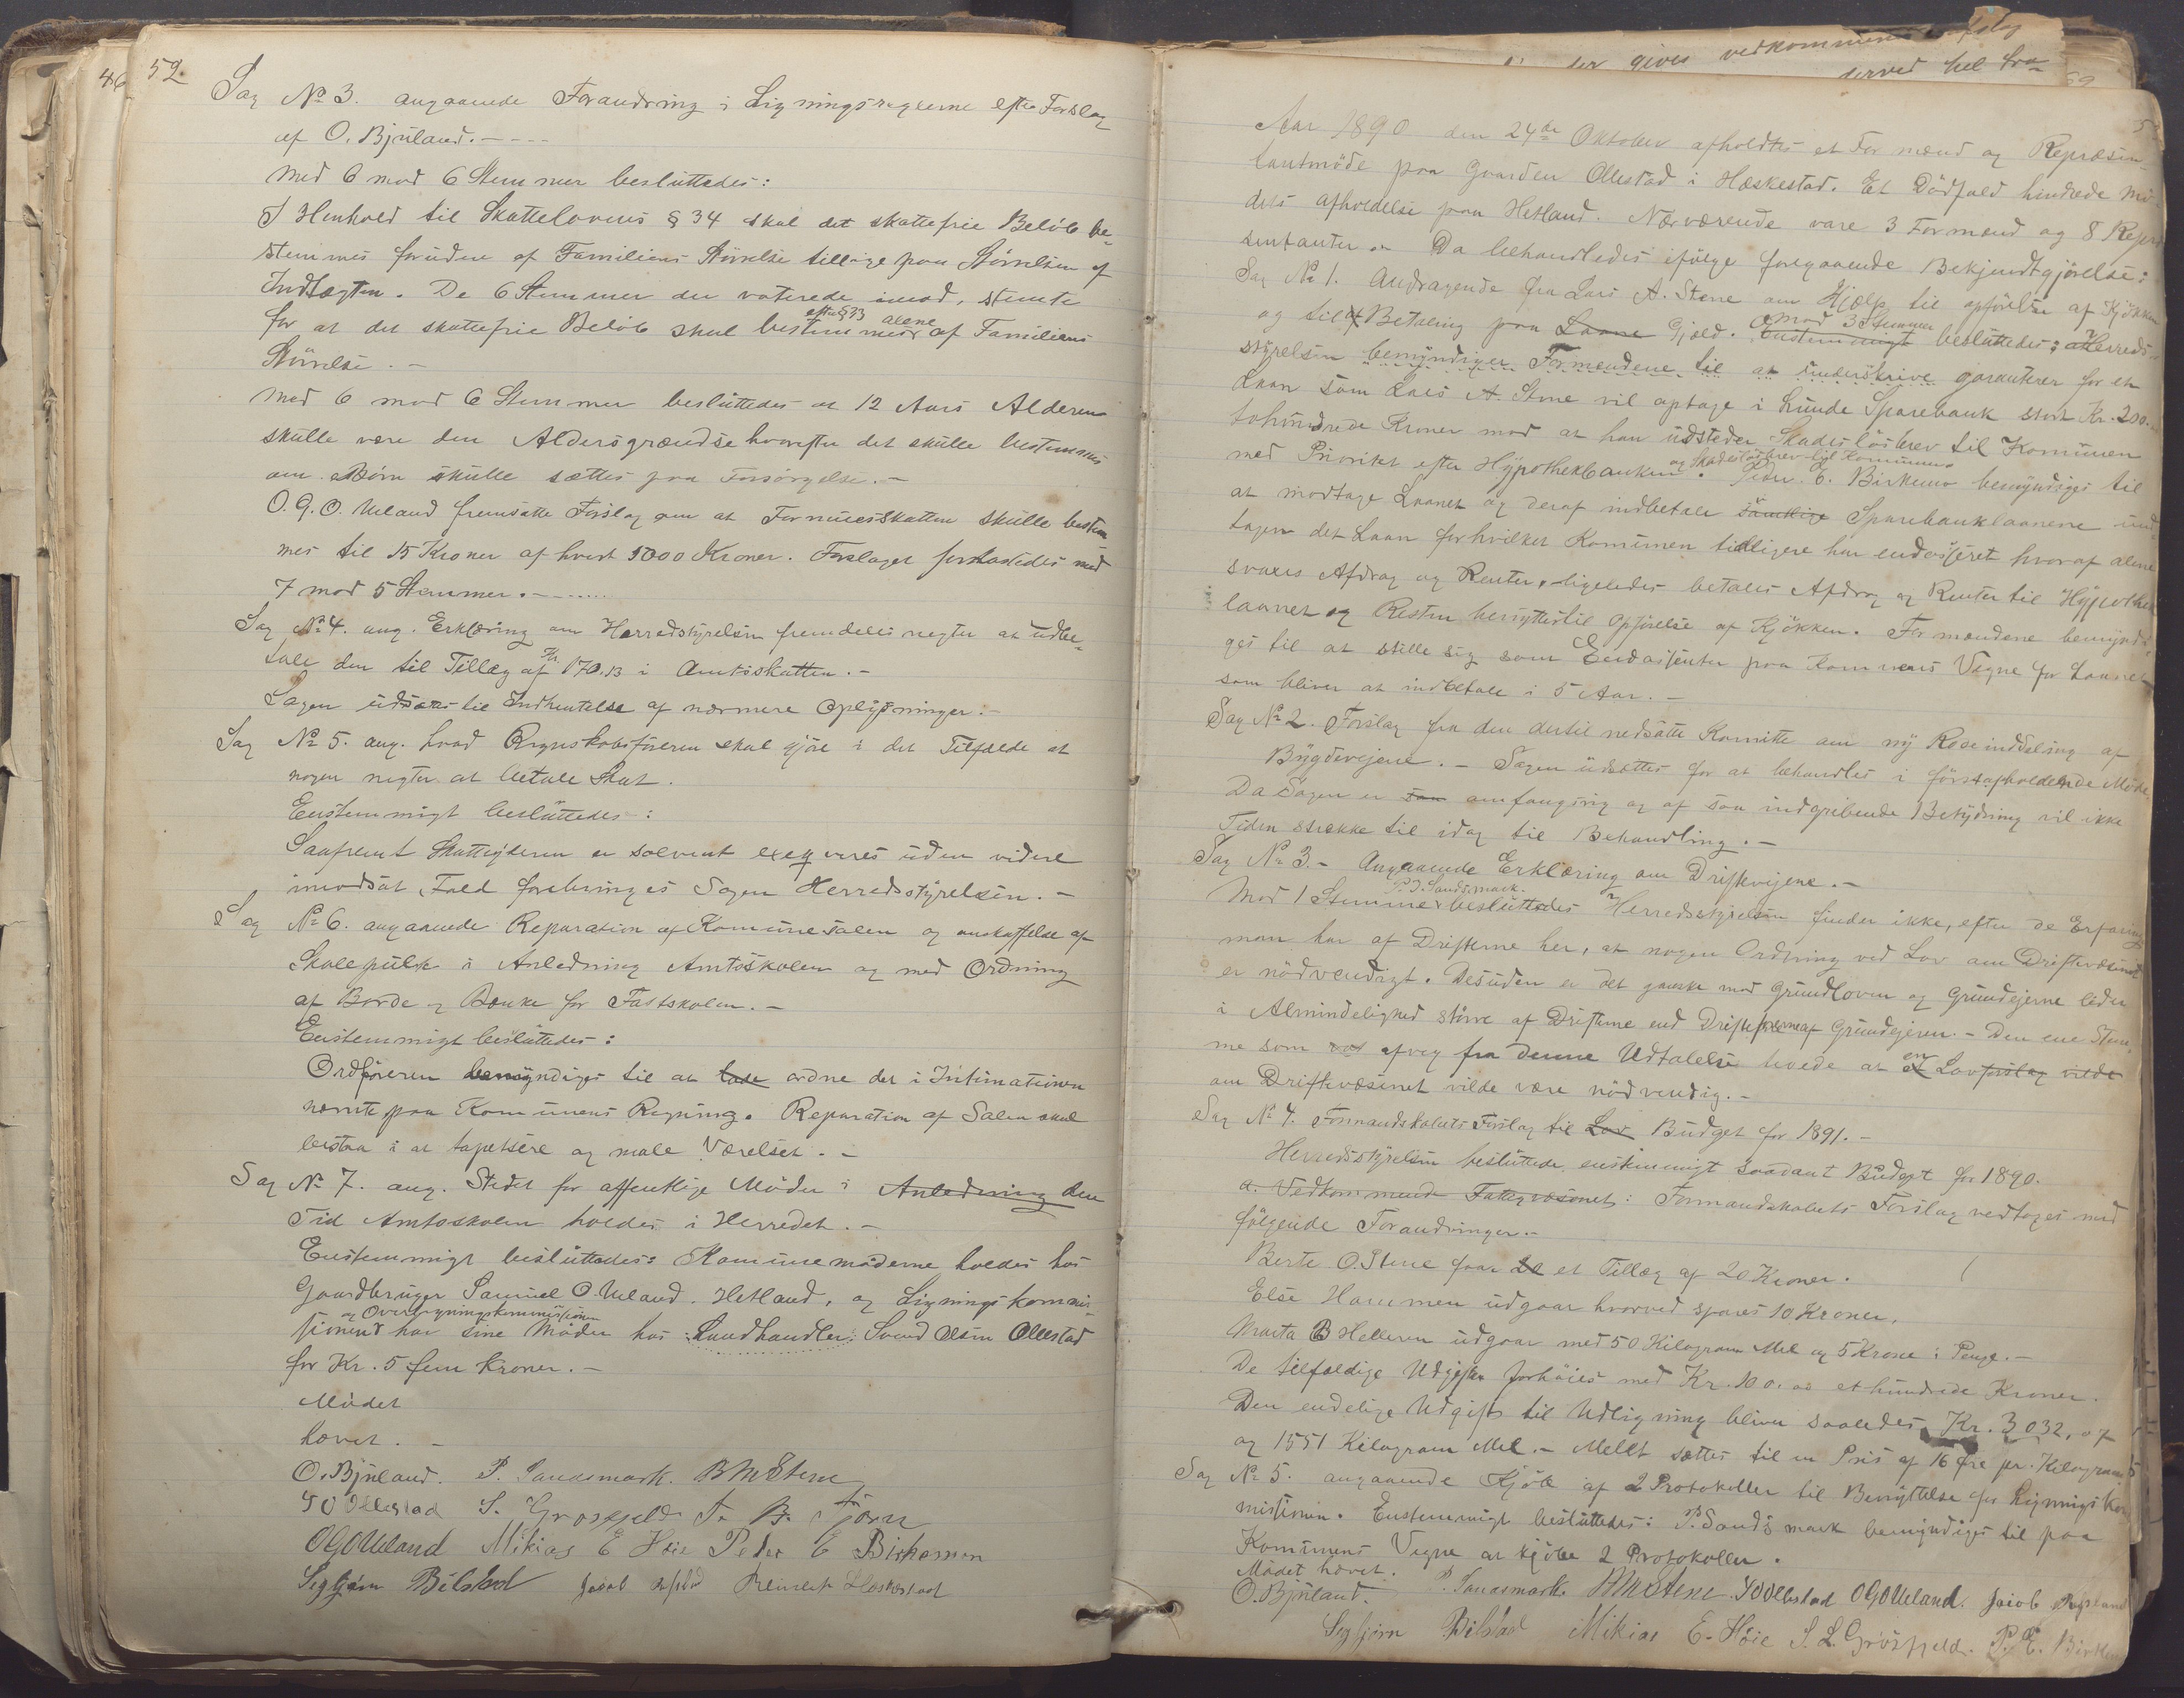 46
52.
Sag No 3. angaaende Forandring i Ligningsreglerne efter Forslag
af O. Bjuland. - - - -
Med 6 mod 6 Stemmer besluttedes:
I Henhold til Skattelovens § 34 skal det skattefrie Beløb be-
stemmes foruden af Familiens Størrelse tillige paa Størrelsen af
Indtægten. De 6 Stemmer der voterede imod, stemte
efter § 33 alene
for at det skattefrie Beløb skal bestemmes af Familiens
Størrelse. -
Med 6 mod 6 Stemmer besluttedes at 12 Aars Alderen
skulle være den Aldersgrændse hvorefter det skulle bestemmes
om Børn skulle sættes paa Forsørgelse. -
O. G. O. Ueland fremsatte Forslag om at Formuesskatten skulle bestem
mes til 15 Kroner af hvert 1000 Kroner. Forslaget forkastedes med
7 mod 5 Stemmer. -
Sag No 4. ang. Erklæring om Herredstyrelsen fremdeles negter at udbe-
tale den til Tillæg af Kr 170.13 i Amtsskatten. -
Sagen udsættes til Indhentelse af nærmere Oplysninger. -
Sag No 5. ang. hvad Regnskabsføreren skal gjøre i det Tilfælde at
nogen negter at betale Skat.
Enstemmigt besluttedes:
Saafremt Skatteyderen er solvent exeqveres uden videre
imodsat Fald forebringes Sagen Herredsstyrelsen. -
Sag No 6. angaaende Reparation af Komunesalen og anskaffelse af
Skolepulte i Anledning Amtsskolen og med Ordning
af Borde og Bænke for Fastskolen. -
Enstemmigt besluttedes:
Ordføreren bemyndiges til at lade ordne det i Intimationen
nævnte paa Komunens Regning. Reparation af Salen skal
bestaa i at tapetsere og male Værelset. -
Sag No 7. ang. Stedet for offentlige Møder i Anledning den
Tid Amtsskolen holdes i Herredet. -
Enstemmigt besluttedes: Komunemøderne holdes hos
Gaardbruger Samuel O. Ueland. Hetland, og Ligningskommis-
og Overligningskommissionen
sionens har sine Møder hos Landhandler Svend Olsen Ollestad
for Kr. 5 fem Kroner. -
Mødet
hævet. -
O. Bjuland. P. Sandsmark. B M Stene
S O Ollestad S. Grøsfjeld T. B. Tjørn
O G O Ueland Mikias E Høie Peder E Birkemoen
Segbjørn Bilstad Jacob
gives vedkommende
Aar 1890 den 24de Oktober afholdtes et Formænd og Repræsen-
tantmøde paa Gaarden Ollestad i Hæskestad. Et Dødfald hindrede Mø-
dets afholdelse paa Hetland. Nærværende vare 3 Formænd og 8 Repræ
sentanter. - Da behandledes ifølge foregaaende Bekjendtgjørelse:
Sag No 1. Andragende fra Lars A. Stene om Hjælp til opførelse af Kjøkken
mod 3 Stemmer
og til Betaling paa Laane Gjeld. Enstemmigt besluttedes: Herreds-
styrelsen bemyndiger Formændene til at underskrive garanterer for et
Laan som Lars A. Stene vil optage i Lunde Sparebank stort Kr. 200.
tohundrede Kroner mod at han udsteder Skadesløsbrev til Komunen
og Skadesløsbrev til Komunen
med Prioritet efter Hypothekbanken. Peder E. Birkemo bemyndiges til
at modtage Laanet og deraf indbetale samtlige Sparebanklaanene und
tagen det Laan forhvilket Komunen tidligere har endosseret hvoraf alene
svares Afdrag og Renter, ligeledes betales Afdrag og Renter til Hypothek
laanet og Resten benyttes til Opførelse af Kjøkken. Formændene bemyndi
ges til at stille sig som Endossenter paa Komunens Vegne for Laanet
som bliver at indbetale i 5 Aar. -
Sag No 2. Forslag fra den dertil nedsatte Komitte om ny Rodeinddeling af
Bygdevejene. - Sagen udsættes for at behandles i førstafholdende Møde.
Da Sagen er saa omfangsrig og af saa indgribende Betydning vil ikke
Tiden strække til idag til Behandling. -
Sag No 3. - Angaaende Erklæring om Driftevejene. -
P. T. Sandsmark.
Mod 1 Stemme besluttedes Herredsstyrelsen finder ikke, efter de Erfaringer
man har af Drifterne her, at nogen Ordning ved Lov om Driftevæsenet
er nødvendigt. Desuden er det ganske mod Grundloven og Grundejerne lider
i Almindelighed større af Drifterne end Drifterne af Grundejeren. - Den ene Stem
me som afveg fra denne Udtalelse troede at et en Lovforslag vilde
om Driftevæsenet vilde være nødvendig. -
Sag No 4. Formandskabets Forslag til Lov Budget for 1891. -
Herredsstyrelsen besluttede enstemmigt saadant Budget for 1890.
a. Vedkommende Fattigvæsenet: Formandskabets Forslag vedtoges med
følgende Forandringer. -
Berte O. Stene faar et Tillæg af 20 Kroner.
Else Hammen udgaar hvorved spares 10 Kroner.
Marta B Helleren udgaar med 50 Kilogram Mel og 5 Krone i Penge. -
De tilfældige Udgifter forhøies med Kr. 100.00 et hundrede Kroner.
Den endelige Udgift til Udligning bliver saaledes Kr. 3032,07
og 1551 Kilogram Mel. - Melet sættes til en Pris af 16 Øre pr. Kilogram
Sag No 5. angaaende Kjøb af 2 Protokoller til Benyttelse for Ligningskom
missionen. Enstemmigt besluttedes: P. Sandsmark bemyndiges til paa
Komunens Vegne at kjøbe 2 Protokoller.
Mødet hævet.
O. Bjuland. P. Sandsmark. B M Stene. S O Ollestad O G O Ueland. Jacob
Segbjørn Bilstad Mikias E. Høie S. L. Grøsfjeld. P. E. Birkemo